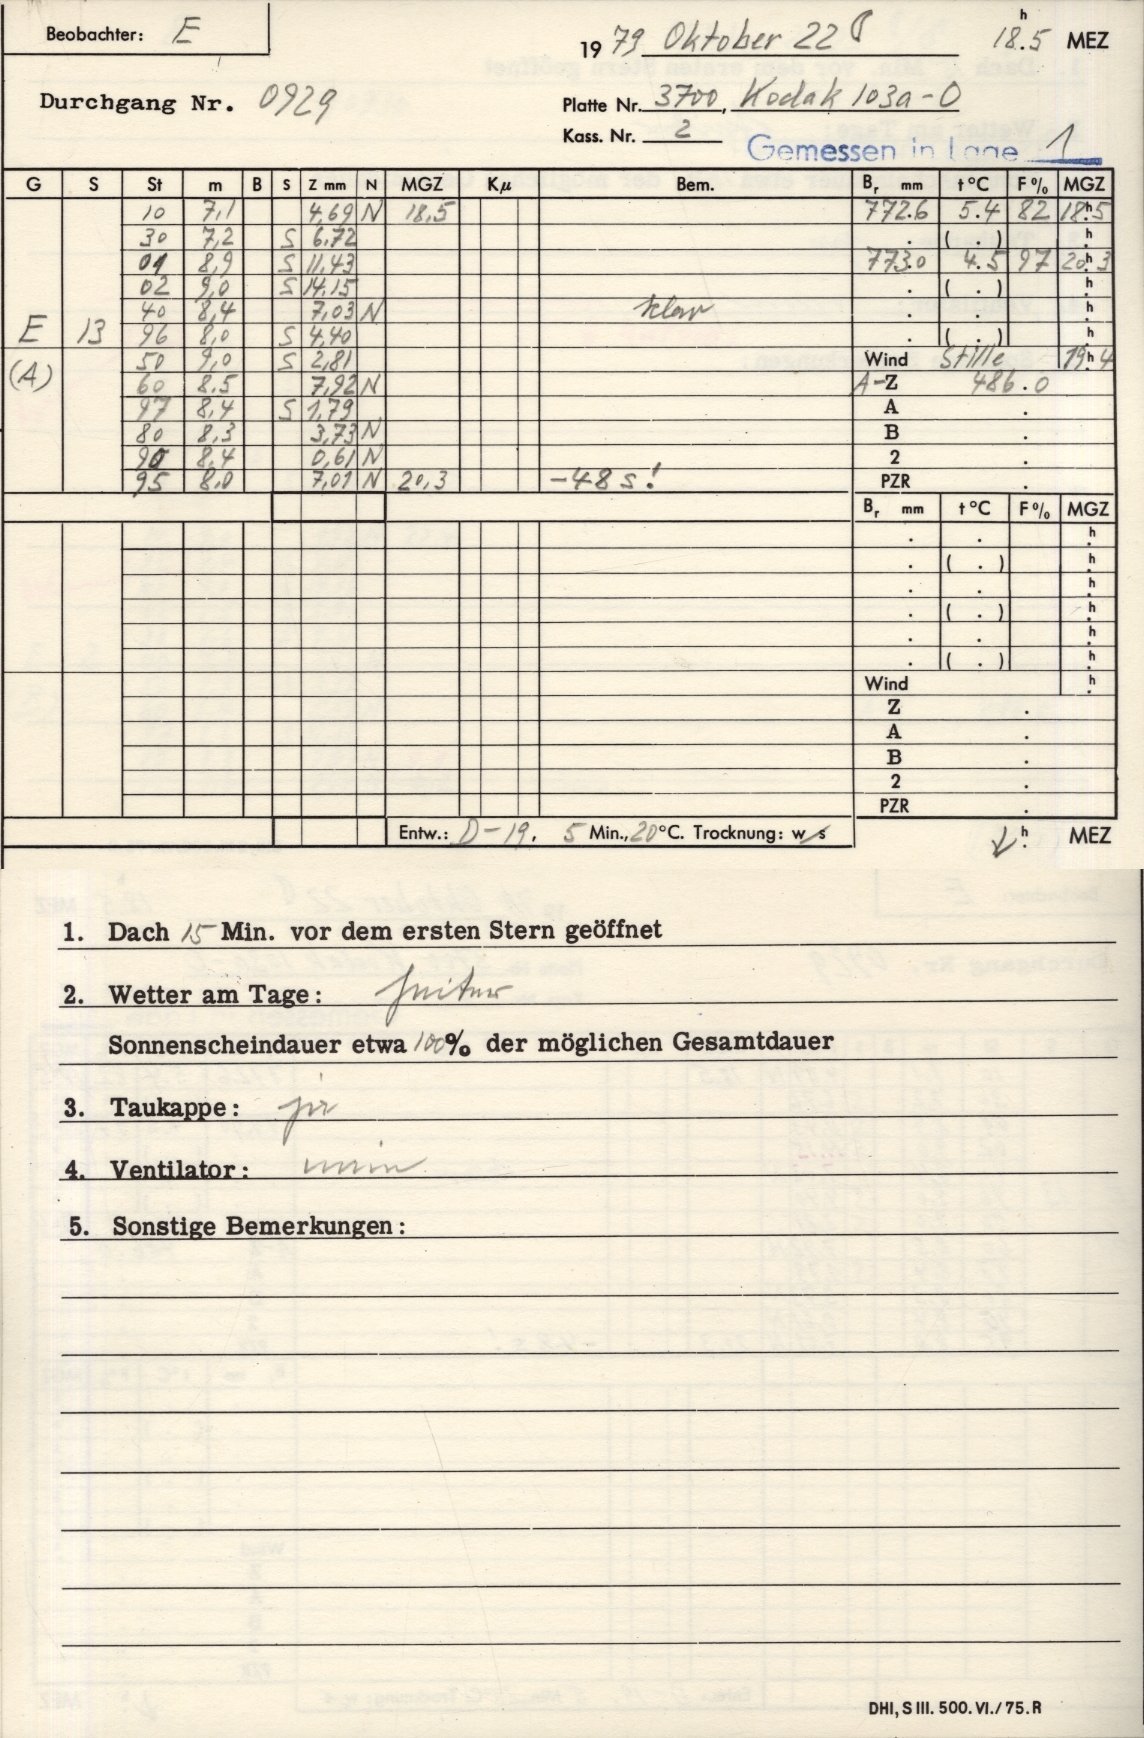 Beobachter: E
1979 Oktober 22 18.5 h MEZ
Durchgang Nr. 0929
Platte Nr. 3700, Kodak 103a-O
Kass. Nr. 2
Gemessen in Lage 1
G S St m B S Z mm N MGZ Kμ Bem. Br mm t°C F% MGZ
10 7,1 4,69 N 18,5 772.6 5.4 82 18h5
30 7,2 S 6,72 . ( . ) h
01 8,9 S 11,43 773.0 4.5 97 20h3
02 9,0 S 14,15 . ( . ) h
40 8,4 7,03 N klar . . h
E 13 96 8,0 S 4,40 . ( . ) h
(A) 50 9,0 S 2,81 Wind Stille 19h4
60 8.5 7,92 N A-Z 486.0
97 8,4 S 1,79 A .
80 8,3 3,73 N B .
90 8,4 0,61 N 2 .
95 8,0 7,01 N 20,3 -48 s! PZR .
Br mm t°C F% MGZ
. . h
. ( . ) h
. . h
. ( . ) h
. . h
. ( . ) h
Wind h
Z .
A .
B .
2 .
PZR .
Entw.: D-19. 5 Min., 20°C. Trocknung: w/s
h MEZ
1. Dach 15 Min. vor dem ersten Stern geöffnet
2. Wetter am Tage: heiter
Sonnenscheindauer etwa 100% der möglichen Gesamtdauer
3. Taukappe: ja
4. Ventilator: nein
5. Sonstige Bemerkungen:
DHI, S III. 500. VI./75. R